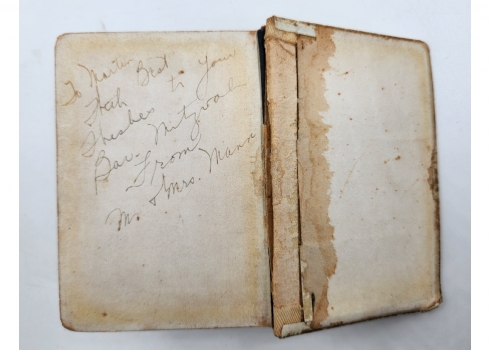 To Martin
With Best
Wishes to Your
Bar. Mitzvah
From
Mr. & Mrs. Mann